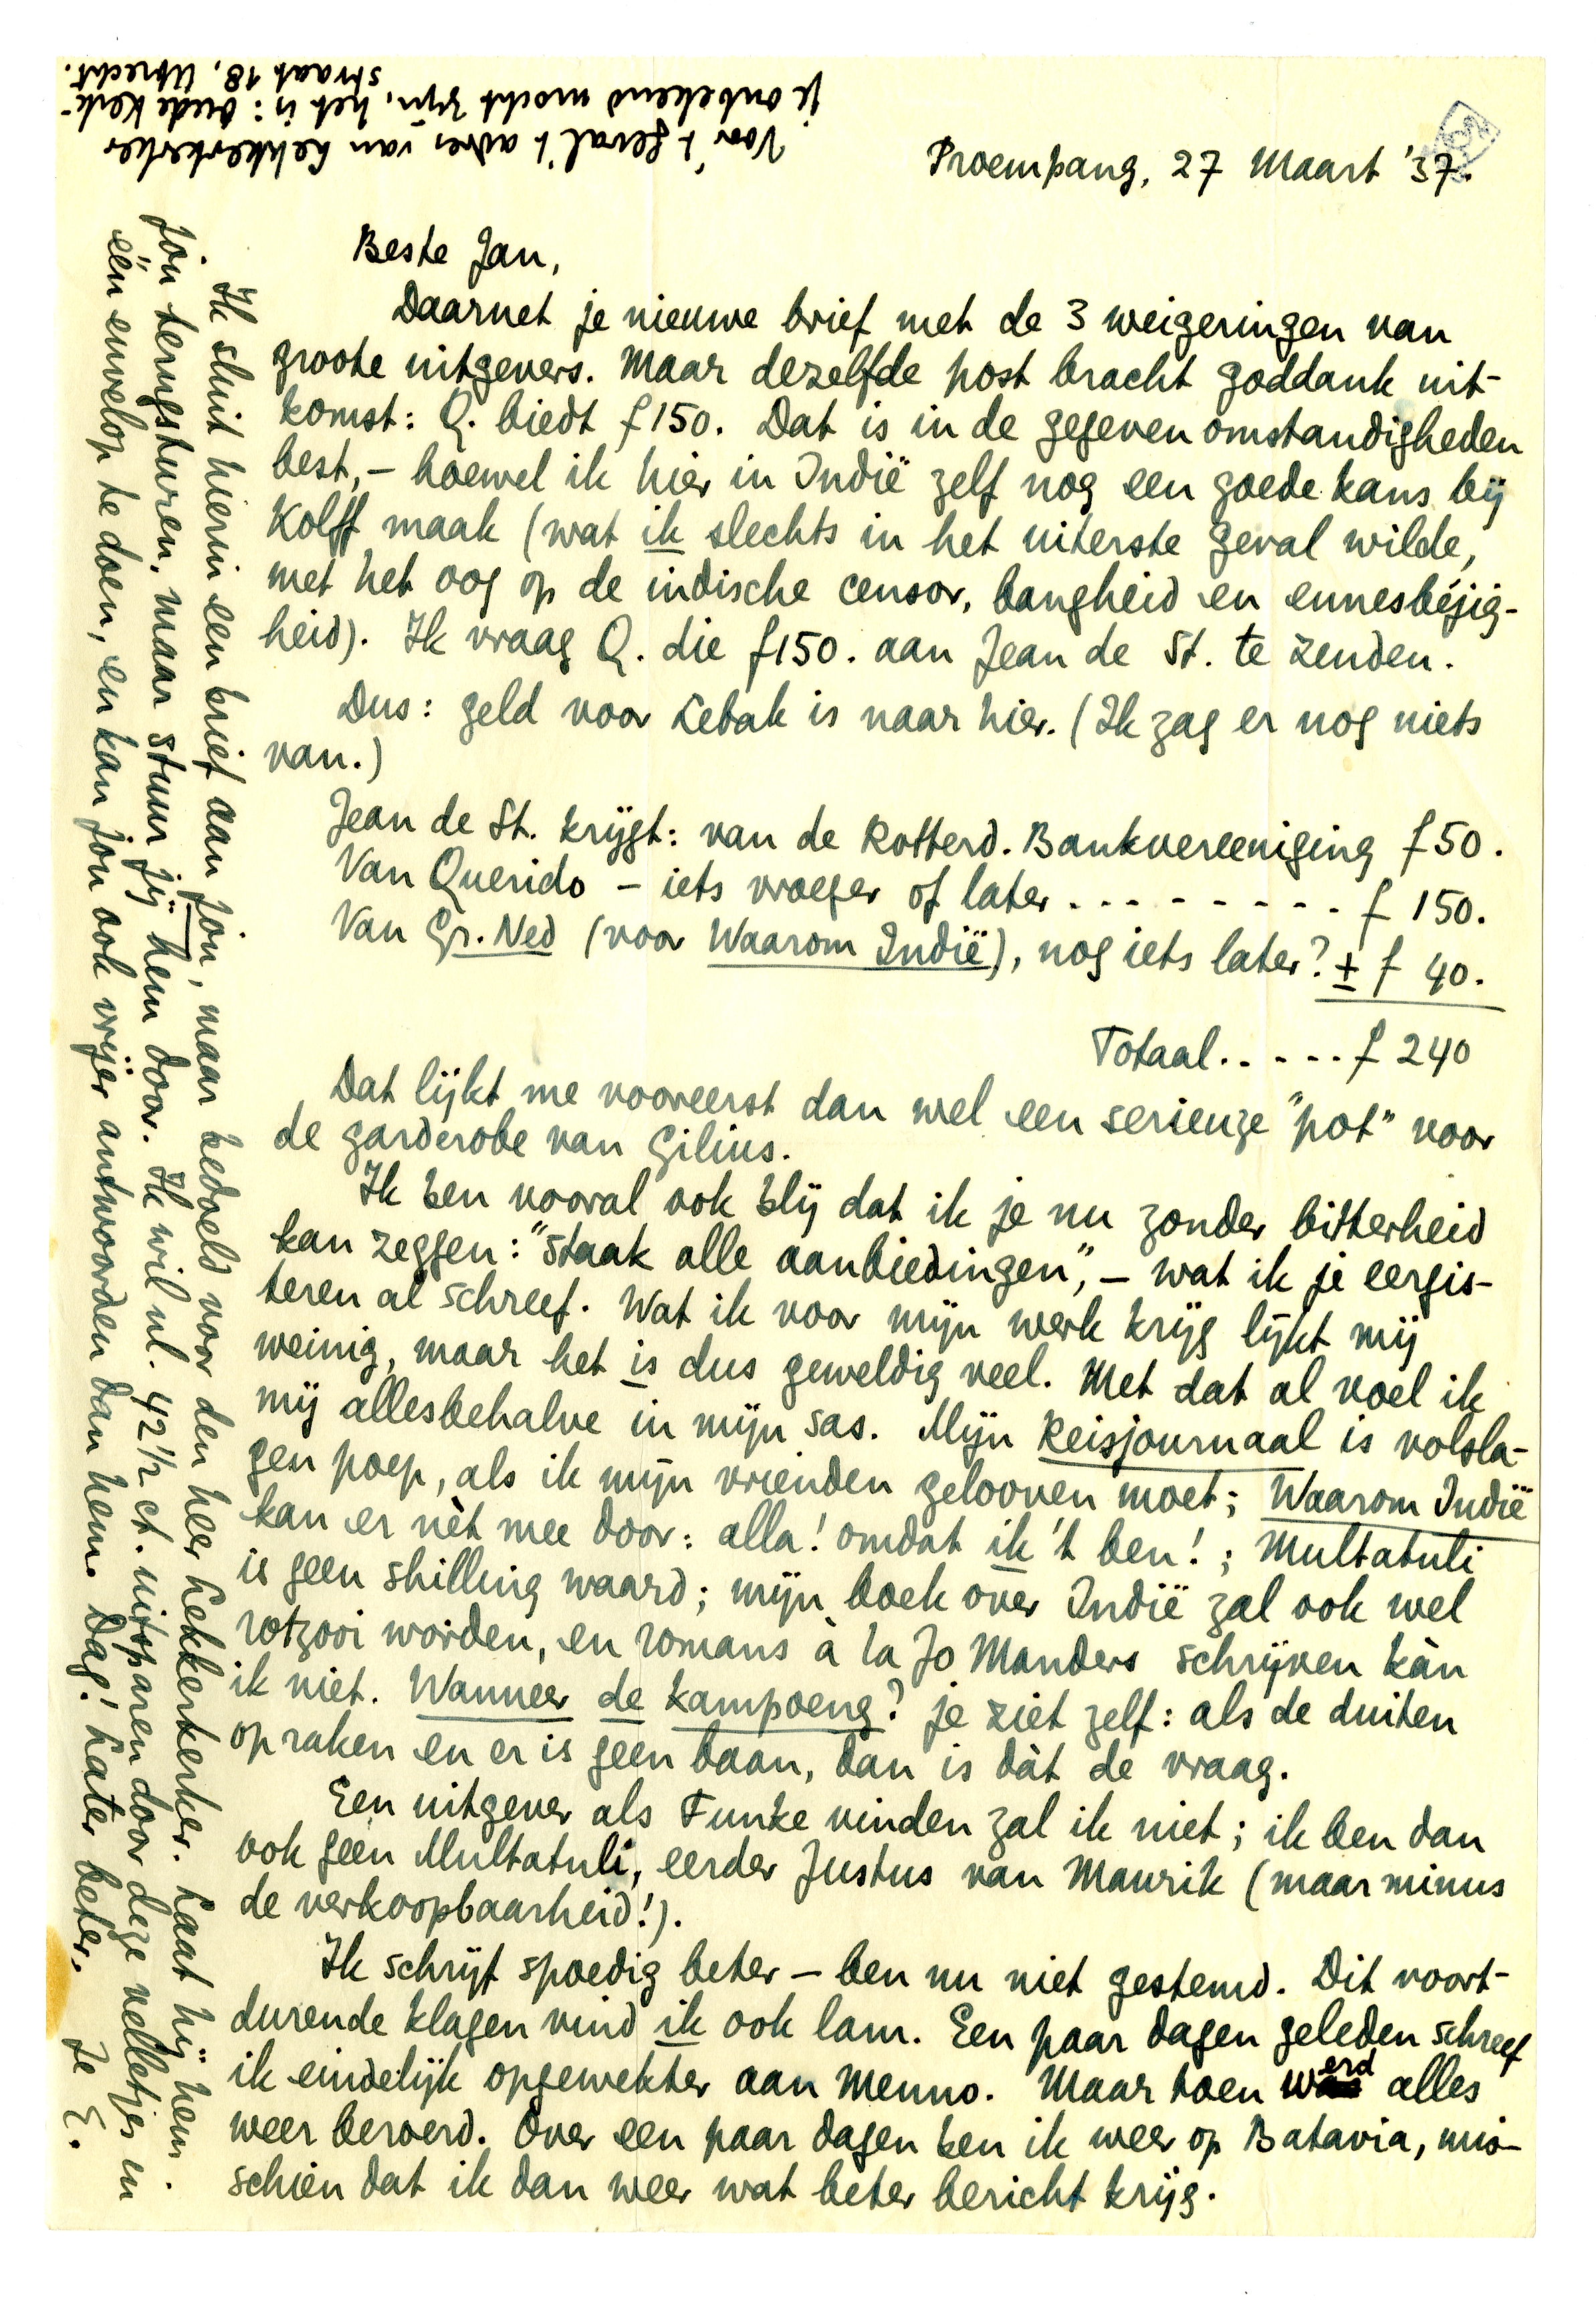 Proempang, 27 Maart '37.
Beste Jan,
Daarnet je nieuwe brief met de 3 weigeringen van
groote uitgevers. Maar dezelfde post bracht goddank uit-
komst: Q. biedt f 150. Dat is in de gegeven omstandigheden
best, – hoewel ik hier in Indië zelf nog een goede kans bij
Kolff maak (wat ik slechts in het uiterste geval wilde,
met het oog op de indische censor, bangheid en ennesbéjig-
heid). Ik vraag Q. die f150. aan Jean de St. te zenden.
Dus: geld voor Lebak is naar hier. (Ik zag er nog niets
van.)
Jean de St. krijgt: van de Rotterd. Bankvereeniging f 50.
Van Querido – iets vroeger of later . . . . . . . . . f 150.
Van Gr. Ned (voor Waarom Indië), nog iets later? ± f 40.
Totaal . . . . . . f 240
Dat lijkt me vooreerst dan wel een serieuze "pot" voor
de garderobe van Gilius.
Ik ben vooral ook blij dat ik je nu zonder bitterheid
kan zeggen: "Staak alle aanbiedingen", – wat ik je eergis-
teren al schreef. Wat ik voor mijn werk krijg lijkt mij
weinig, maar het is dus geweldig veel. Met dat al voel ik
mij allesbehalve in mijn sas. Mijn Reisjournaal is volsla-
gen poep, als ik mijn vrienden gelooven moet; Waarom Indië
kan er nèt mee door: alla! omdat ik 't ben!; Multatuli
is geen shilling waard; mijn boek over Indië zal ook wel
rotzooi worden, en romans à la Jo Manders schrijven kàn
ik niet. Wanneer de kampoeng? je ziet zelf: als de duiten
opraken en er is geen baan, dan is dàt de vraag.
Een uitgever als Funke vinden zal ik niet; ik ben dan
ook geen Multatuli, eerder Justus van Maurik (maar minus
de verkoopbaarheid!).
Ik schrijf spoedig beter – ben nu niet gestemd. Dit voort-
durende klagen vind ik ook lam. Een paar dagen geleden schreef
ik eindelijk opgewekter aan Menno. Maar toen werd alles
weer beroerd. Over een paar dagen ben ik weer op Batavia, mis-
schien dat ik dan weer wat beter bericht krijg.
Ik sluit hierin een brief aan jou, maar bedoeld voor den heer Lekkerkerker. Laat hij hem
jou terugsturen, maar stuur jij hem door. Ik wil nl. 42 1/2 ct. uitsparen door deze velletjes in
één envelop te doen, en kan jou ook vrijer antwoorden dan hem. Dag! Later beter. Je E.
Voor 't geval 't adres van Lekkerkerker
je onbekend mocht zijn, het is: Oude Kerk-
straat 18, Utrecht.